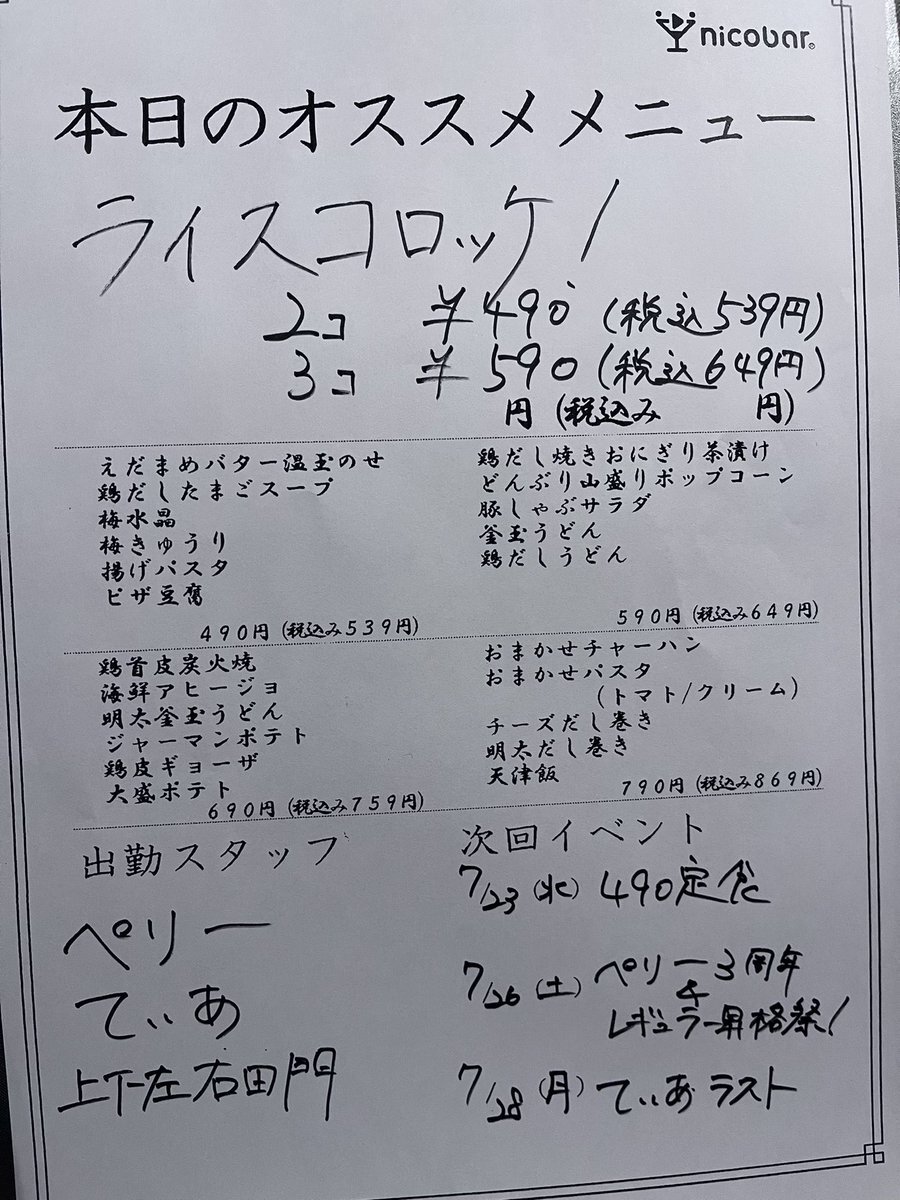 nicobar
本日のオススメメニュー
ライスコロッケ!
2コ ¥490 (税込539円)
3コ ¥590 (税込649円)
円 (税込み 円)
えだまめバター温玉のせ
鶏だしたまごスープ
梅水晶
梅きゅうり
揚げパスタ
ピザ豆腐
490円 (税込み539円)
鶏だし焼きおにぎり茶漬け
どんぶり山盛りポップコーン
豚しゃぶサラダ
釜玉うどん
鶏だしうどん
590円 (税込み649円)
鶏首皮炭火焼
海鮮アヒージョ
明太釜玉うどん
ジャーマンポテト
鶏皮ギョーザ
大盛ポテト
690円 (税込み759円)
おまかせチャーハン
おまかせパスタ
(トマト/クリーム)
チーズだし巻き
明太だし巻き
天津飯
790円 (税込み869円)
出勤スタッフ
ペリー
てぃあ
上下左右田門
次回イベント
7/23 (水) 490定食
7/26 (土) ペリー3周年
&
レギュラー昇格祭!
7/28 (月) てぃあラスト